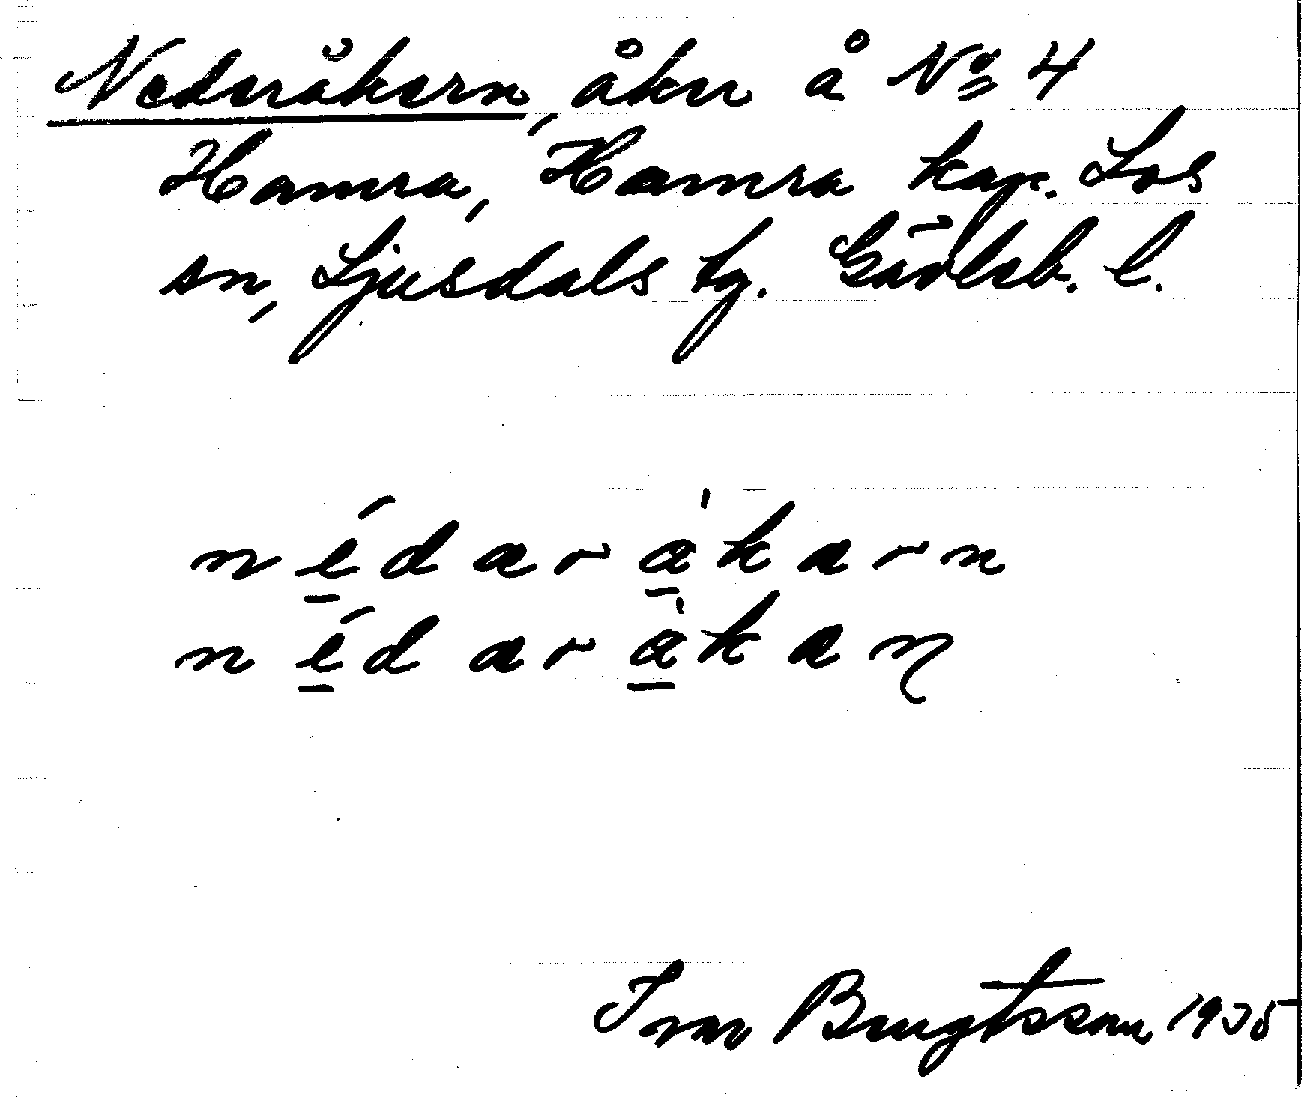 Nederåkern, åker å No 4
Hamra, Hamra kap. Los
sn, Ljusdals tg. Gävleb. l.
nédaràkarn
nédaràkaɳ
Bengtsson 1935